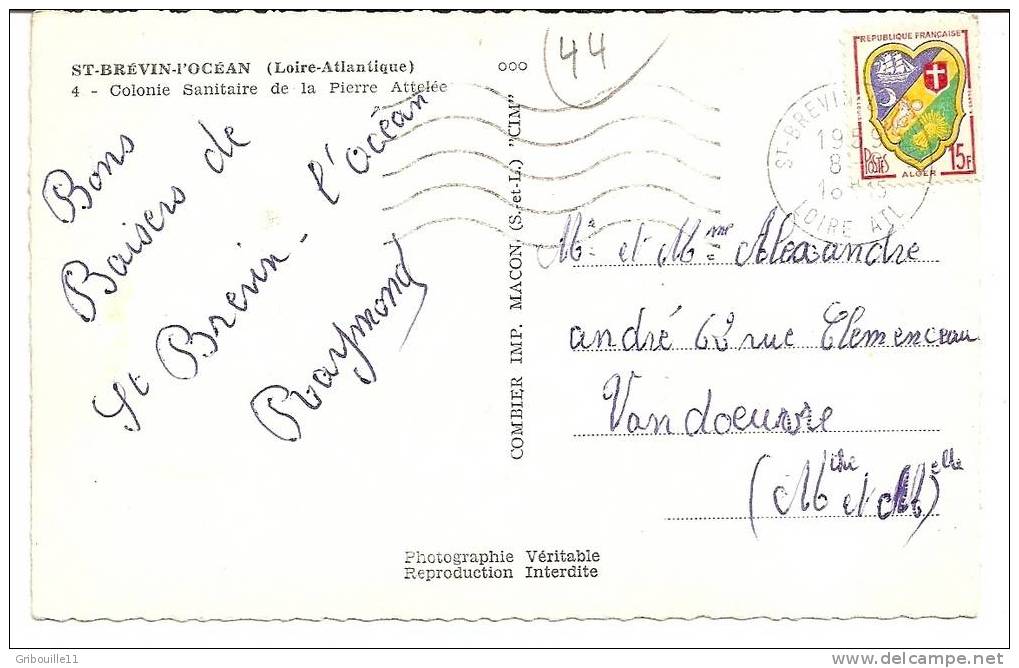 ST-BRÉVIN-l'OCÉAN (Loire-Atlantique)
4 - Colonie Sanitaire de la Pierre Attelée
ooo
44
Bons
Baisers de
St Brevin - l'Océan
Raymond
COMBIER IMP. MACON. (S.-et-L.) "CIM"
RÉPUBLIQUE FRANÇAISE
POSTES
15F
ALGER
ST-BREVIN
1959
8
LOIRE ATL
Mr et Mme Alexandre
andré 62 rue Clemenceau
Vandoeuvre
(Mthe et Melle)
Photographie Véritable
Reproduction Interdite
Gribouille11
http://www.delcampe.net